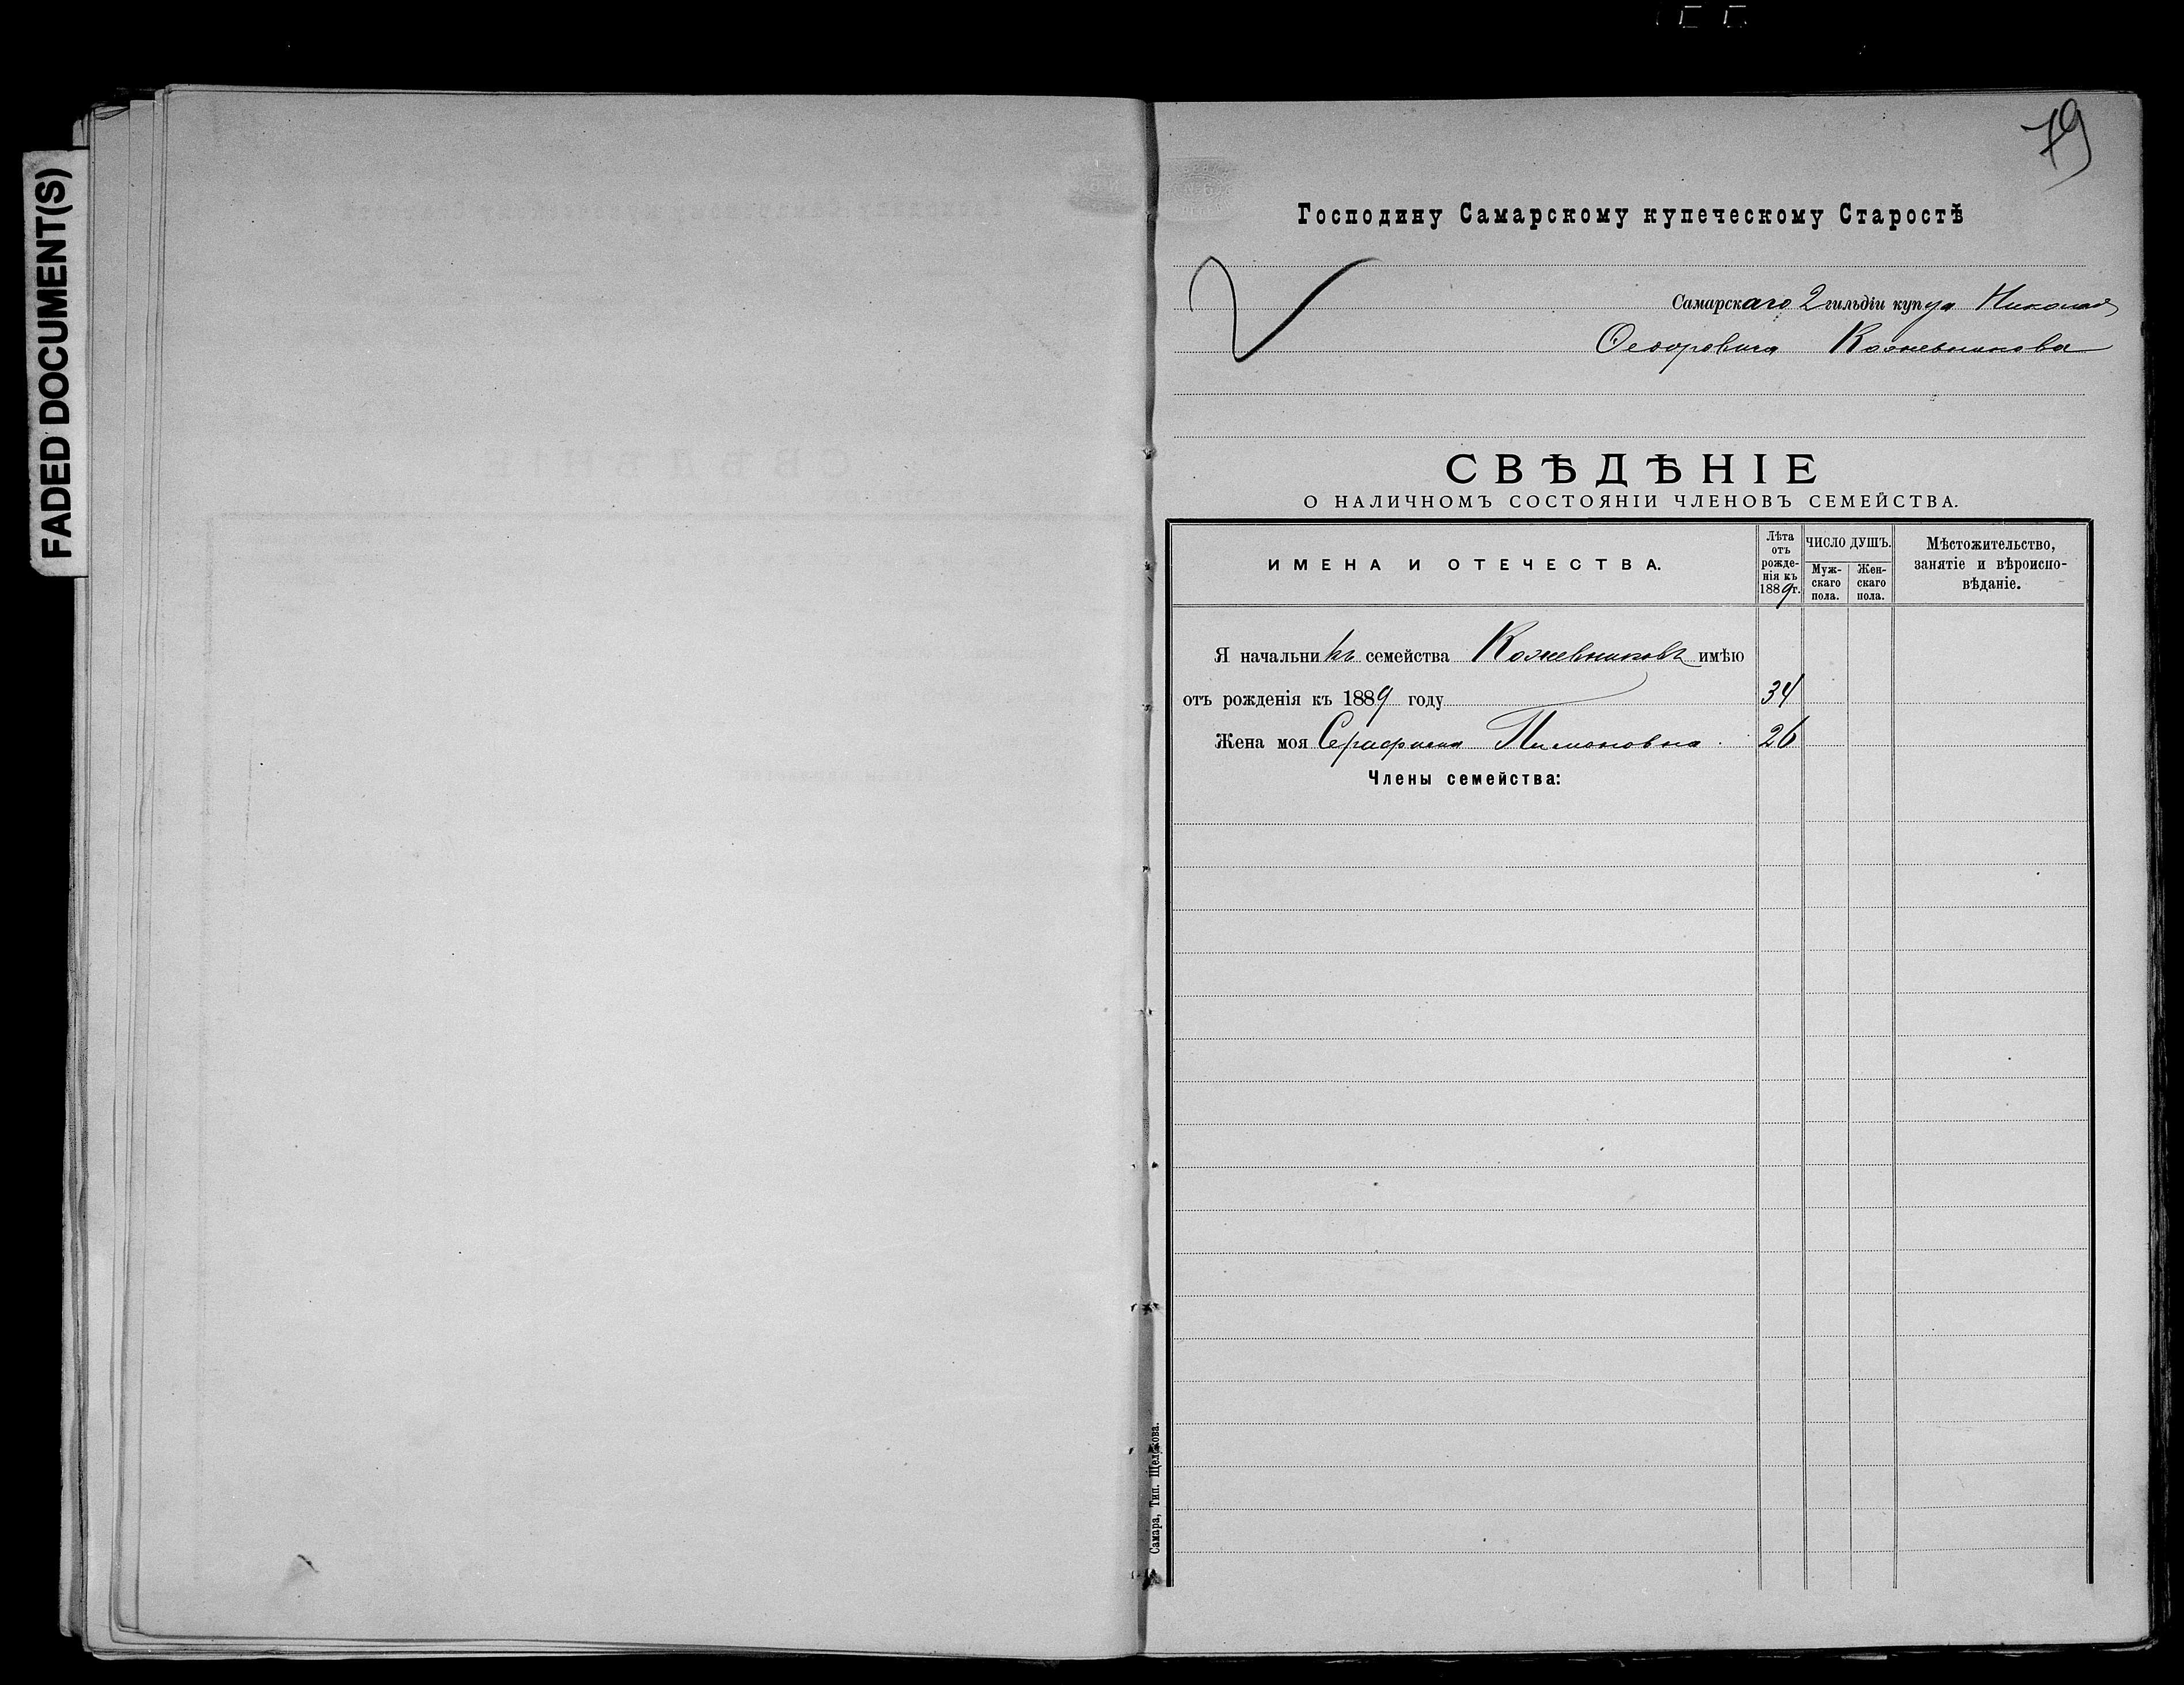 FADED DOCUMENT(S)
79
Господину Самарскому купеческому Старостѣ
Самарскаго 2 гильдіи купца Николая
Ѳеодоровича Кожевникова
СВѢДѢНІЕ
О НАЛИЧНОМЪ СОСТОЯНІИ ЧЛЕНОВЪ СЕМЕЙСТВА.
ИМЕНА И ОТЕЧЕСТВА.
Лѣта
отъ
рожде-
нія къ
1889 г.
ЧИСЛО ДУШЪ.
Муж-
скаго
пола.
Жен-
скаго
пола.
Мѣстожительство,
занятіе и вѣроиспо-
вѣданіе.
Я начальникъ семейства Кожевниковъ имѣю
отъ рожденія къ 1889 году 34
Жена моя Серафима Пимоновна 26
Члены семейства:
Самара, Тип. Щелокова.